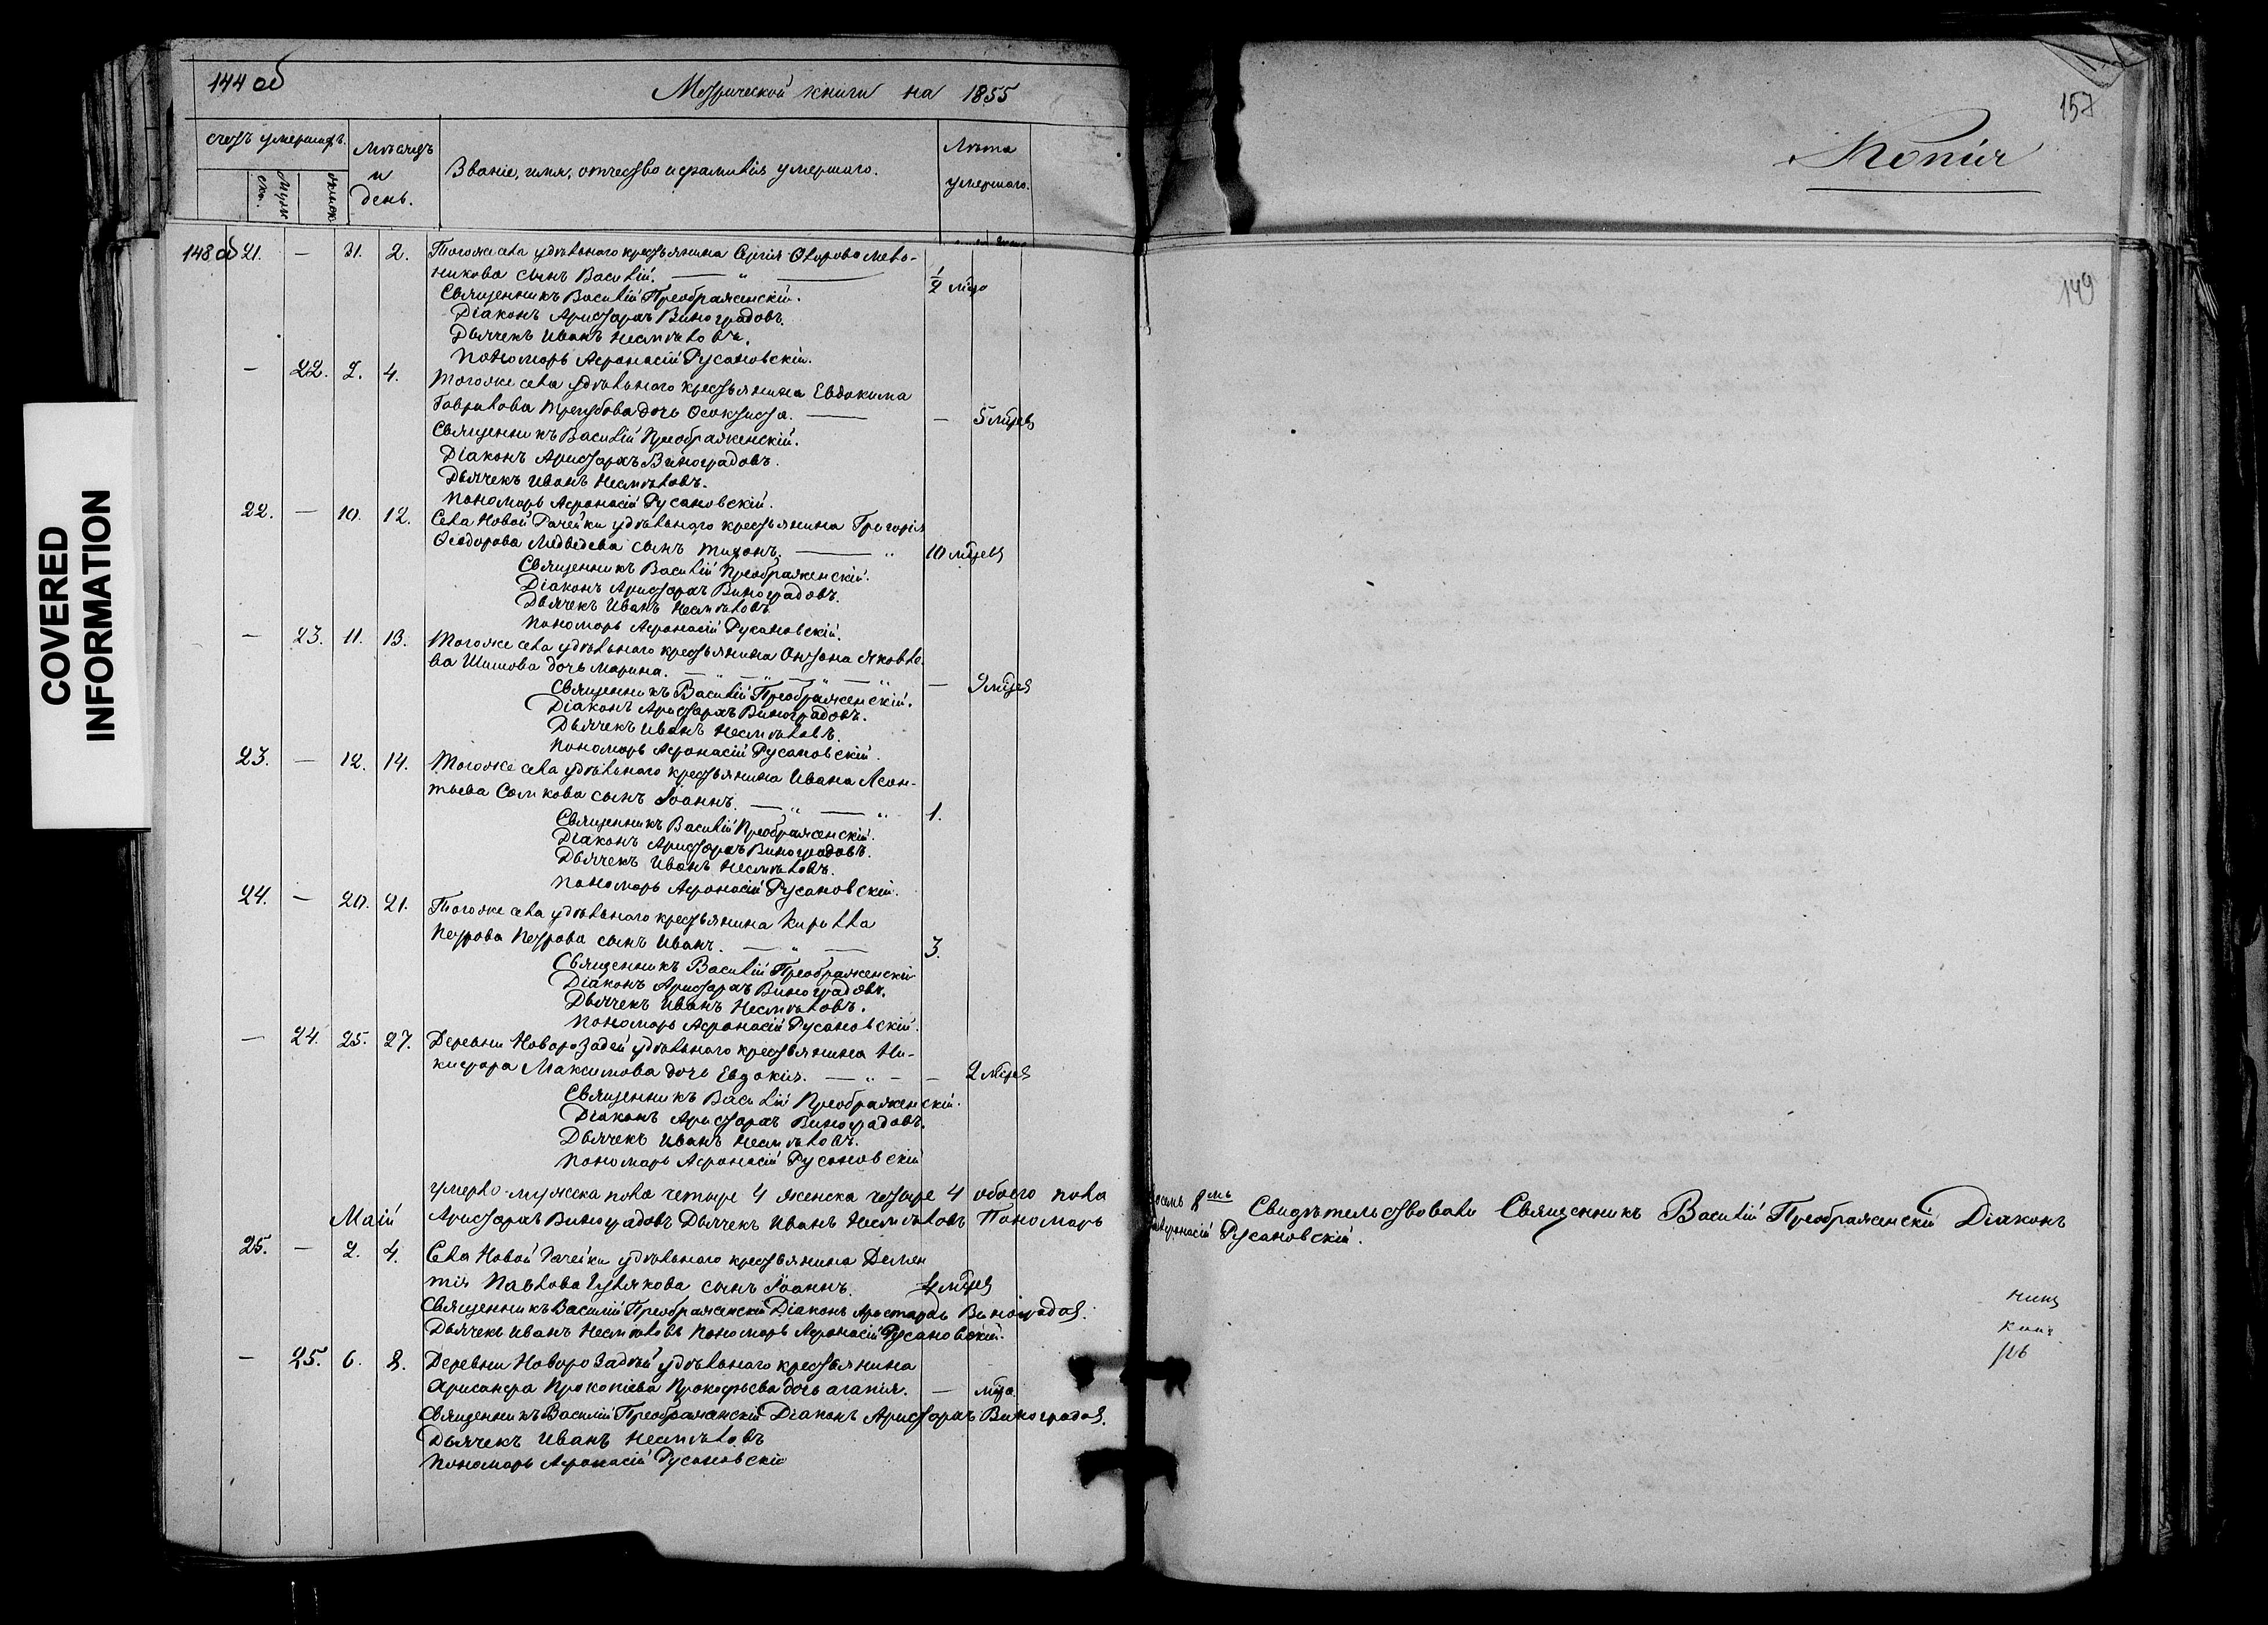 144 об
Метрической книги на 1855
Счетъ умершихъ.
Мужеска.
женск.
Мѣсяцъ
и
день.
Званіе, имя, отчество и фамилія умершаго.
Лѣта
умершаго.
148 об 21. — 31. 2. Тогоже села удѣльнаго крестьянина Сергія
никова сынъ Василій. — " — 1/2 мѣца
Священникъ Василій Преображенскій.
Діаконъ Аристархъ Виноградовъ.
Дьячекъ Иванъ Несмѣловъ.
Пономарь Афонасій Русановскій.
— 22. 2. 4. Тогоже села удѣльнаго крестьянина Евдокима
Гаврилова Трегубова дочь Феоктиста. — — 5 мѣцевъ
Священникъ Василій Преображенскій.
Діаконъ Аристархъ Виноградовъ.
Дьячекъ Иванъ Несмѣловъ.
Пономарь Афонасій Русановскій.
22. — 10. 12. Села Новой Рачейки удѣльнаго крестьянина Григорія
Феодорова Медведева сынъ Тихонъ. — " 10 мѣцевъ
Священникъ Василій Преображенскій.
Діаконъ Аристархъ Виноградовъ.
Дьячекъ Иванъ Несмѣловъ.
Пономарь Афонасій Русановскій.
— 23. 11. 13. Тогоже села удѣльнаго крестьянина Антона Яковле
ва Шишова дочь Марина. — " — " — " — 9 мѣцев
Священникъ Василій Преображенскій.
Діаконъ Аристархъ Виноградовъ.
Дьячекъ Иванъ Несмѣловъ.
Пономарь Афонасій Русановскій.
23. — 12. 14. Тогоже села удѣльнаго крестьянина Ивана Леон-
тьева Сомкова сынъ Іоаннъ. — " — " 1.
Священникъ Василій Преображенскій.
Діаконъ Аристархъ Виноградовъ.
Дьячекъ Иванъ Несмѣловъ.
Пономарь Афонасій Русановскій.
24. — 20. 21. Тогоже села удѣльнаго крестьянина Кирилла
Петрова Петрова сынъ Иванъ. — " — 3.
Священникъ Василій Преображенскій
Діаконъ Аристархъ Виноградовъ.
Дьячекъ Иванъ Несмѣловъ.
Пономарь Афонасій Русановскій.
— 24. 25. 27. Деревни удѣльнаго крестьянина Ни-
кифора Максимова дочь Евдокія. — " — — 2 мѣцев
Священникъ Василій Преображенскій.
Діаконъ Аристархъ Виноградовъ.
Дьячекъ Иванъ Несмѣловъ.
Пономарь Афонасій Русановскій
умерло мужска пола четыре 4 женска четыре 4 обоего пола
восемь 8мь Свидѣтельствовали Священникъ Василій Преображенскій Діаконъ
Маій Аристархъ Виноградовъ Дьячекъ Иванъ Несмѣловъ Пономарь
Афонасій Русановскій.
25. — 2. 4. Села Новой Рачейки удѣльнаго крестьянина Демен
тія Павлова сынъ Іоаннъ. 4 мѣцев
Священникъ Василій Преображенскій Діаконъ Аристархъ Виноградов.
Дьячекъ Иванъ Несмѣловъ Пономарь Афонасій Русановскій.
— 25. 6. 8. Деревни удѣльнаго крестьянина
Прокопіева Прокофьева дочь Агапія. — мѣца.
Священникъ Василій Преображенскій Діаконъ Аристархъ Виноградов.
Дьячекъ Иванъ Несмѣловъ
Пономарь Афонасій Русановскій
157
Копія
149
COVERED
INFORMATION